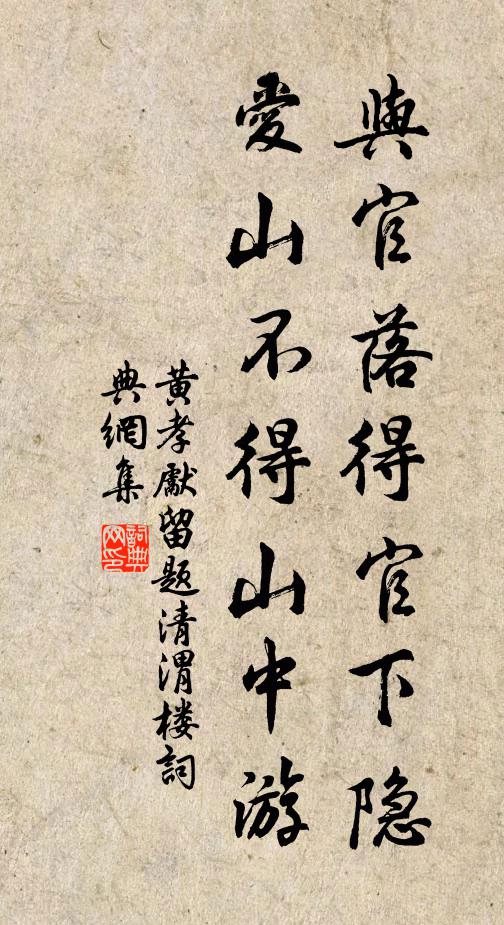 與官落得官下隐
愛山不得山中游
黃孝獻留题清渭楼詞
典網集
詞典網印